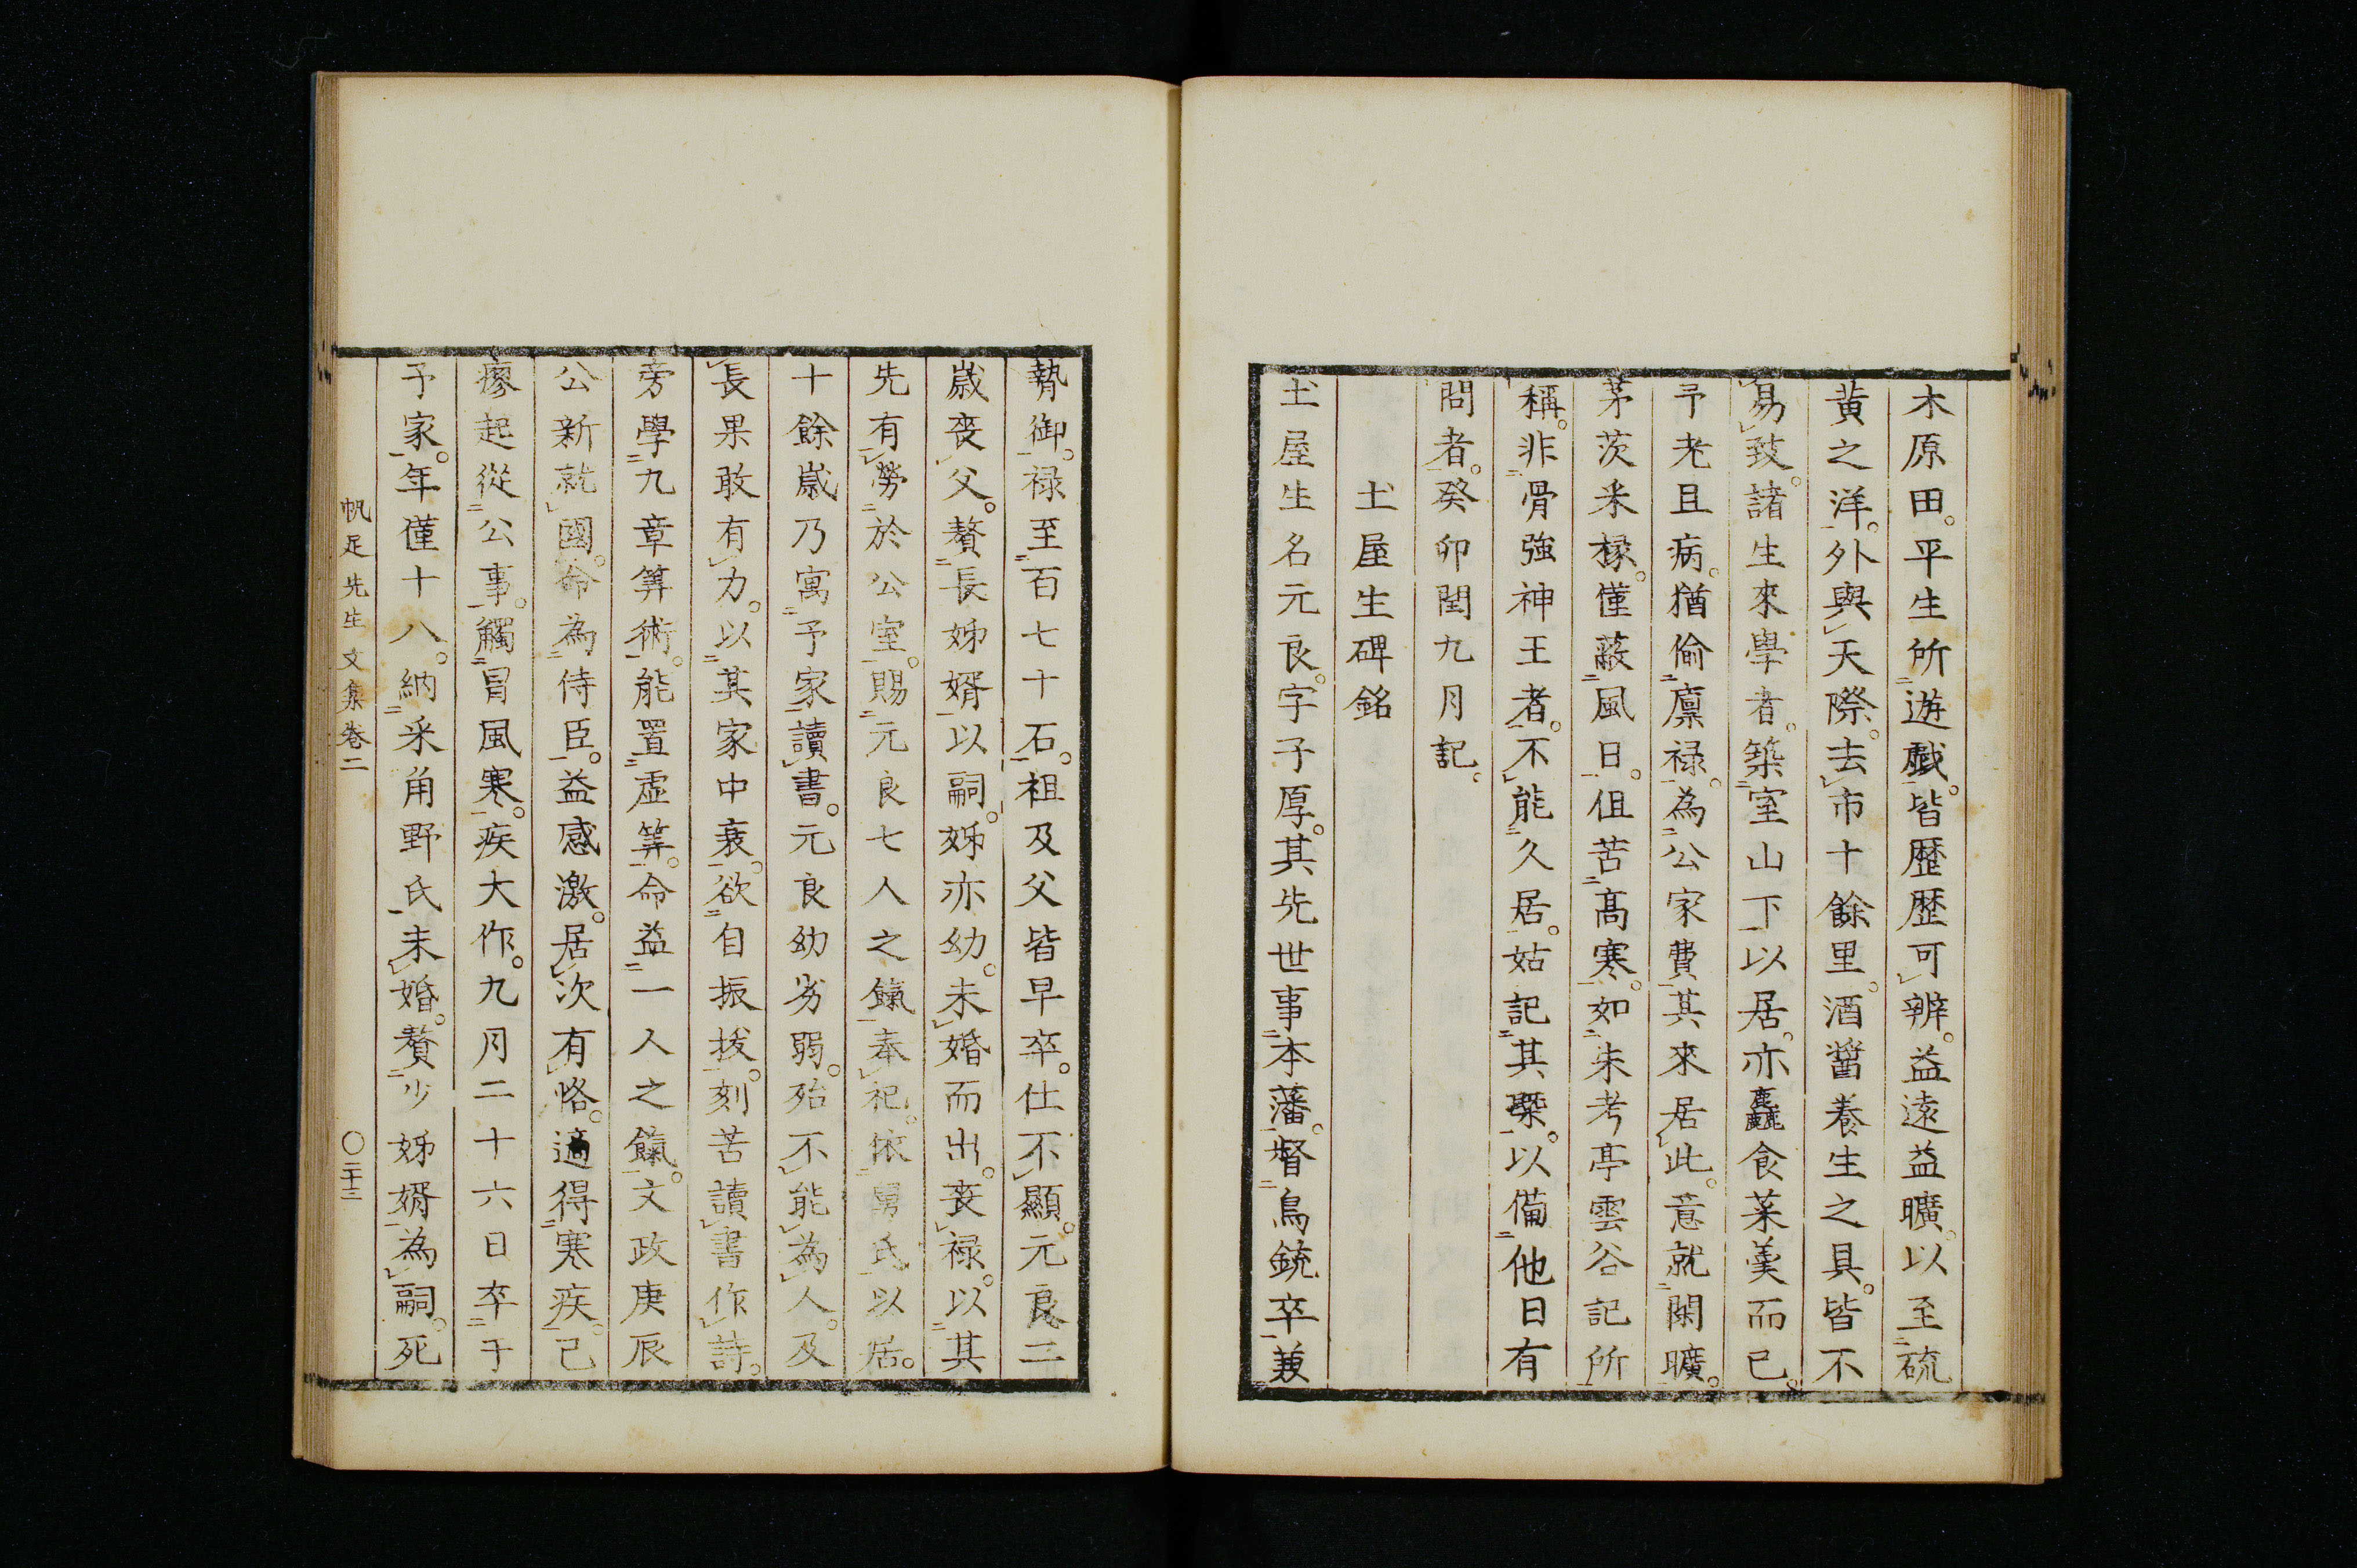 木原田。平生所遊戯。皆歴歴可辨。益遠益曠。以至硫
黄之洋。外與天際。去市十餘里。酒醤養生之具。皆不
易致。諸生來學者。築室山下以居。亦麤食菜羮而已。
予老且病。猶偷廩禄。為公家費。其來居此。意就閑曠。
茅茨釆椽。僅蔽風日。伹苦髙寒。如朱考亭雲谷記所
稱。非骨強神王者。不能久居。姑記其槩。以備他日有
問者。癸卯閏九月記。
土屋生碑銘
土屋生名元良。字子厚。其先世事本藩。督鳥銃卒兼
贄御。禄至百七十石。祖及父皆早卒。仕不顯。元良二
歳喪父。贅長姊婿以嗣。姊亦幼。未婚而出。喪禄。以其
先有勞於公室。賜元良七人之餼奉祀。依舅氏以居。
十餘歳乃寓予家讀書。元良幼劣弱。殆不能為人。及
長果敢有力。以其家中衰。欲自振拔。刻苦讀書作詩。
旁學九章筭術。能置虛筭。命益一人之餼。文政庚辰
公新就國。命為侍臣。益感激。居次有恪。適得寒疾。已
瘳起從公事。觸冒風寒。疾大作。九月二十六日卒于
予家。年僅十八。納采角野氏。未婚。贅少姊婿為嗣。死
帆足先生文集巻二　〇二十三